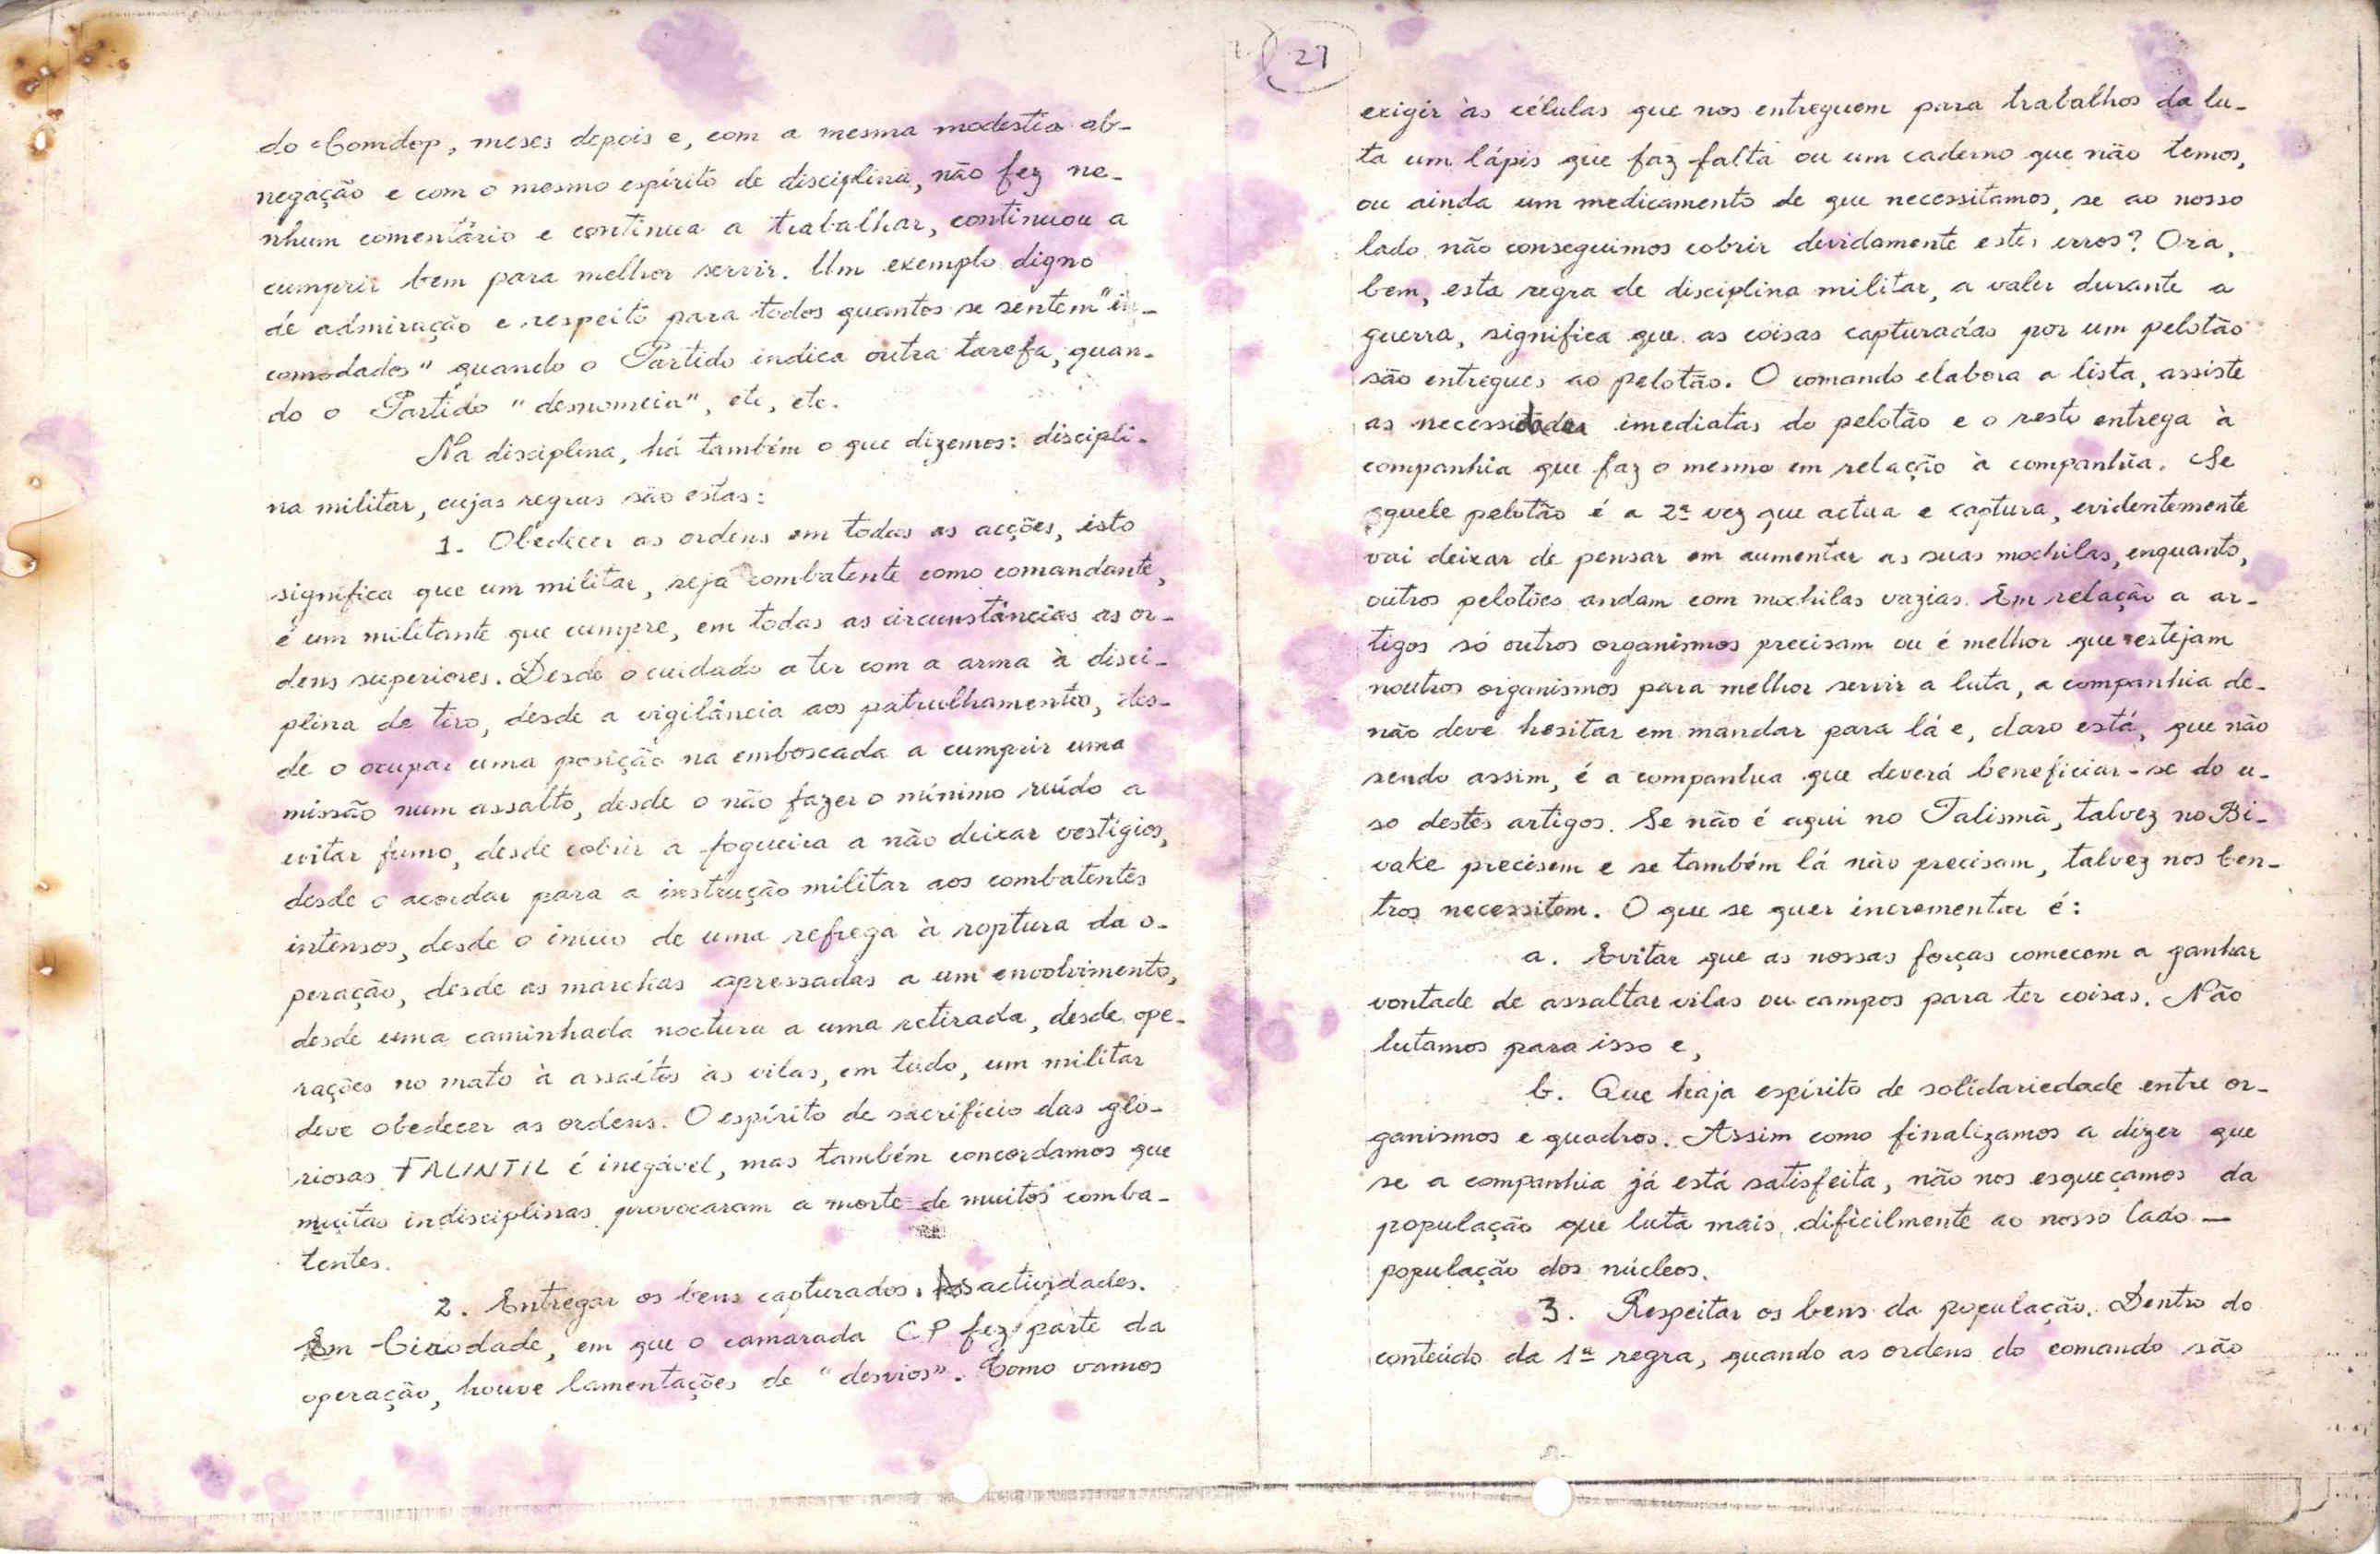 do Comdop, meses depois e, com a mesma modéstia ab-
negação e com o mesmo espírito de disciplina, não fez ne-
nhum comentário e continua a trabalhar, continuou a
cumprir bem para melhor servir. Um exemplo digno
de admiração e respeito para todos quantos se sentem "in-
comodados" quando o Partido indica outra tarefa, quan-
do o Partido "desnomeia", etc, etc.
Na disciplina, há também o que dizemos: discipli-
na militar, cujas regras são estas:
1. Obedecer as ordens em todas as acções, isto
significa que um militar, seja combatente como comandante,
é um militante que cumpre, em todas as circunstâncias as or-
dens superiores. Desde o cuidado a ter com a arma à disci-
plina de tiro, desde a vigilância aos patrulhamentos, des-
de o ocupar uma posição na emboscada a cumprir uma
missão num assalto, desde o não fazer o mínimo ruído a
evitar fumo, desde cobrir a fogueira a não deixar vestígios,
desde o acordar para a instrução militar aos combatentes
intensos, desde o início de uma refrega à roptura da o-
peração, desde as marchas apressadas a um envolvimento,
desde uma caminhada noctura a uma retirada, desde ope-
rações no mato à assaltos às vilas, em tudo, um militar
deve obedecer as ordens. O espírito de sacrifício das glo-
riosas FALINTIL é inegável, mas também concordamos que
muitas indisciplinas provocaram a morte de muitos comba-
tentes.
2. Entregar os bens capturados. As actividades.
Em, em que o camarada CP fez parte da
operação, houve lamentações de "desvios". Como vamos
27
exigir às células que nos entreguem para trabalhos da lu-
ta um lápis que faz falta ou um caderno que não temos,
ou ainda um medicamento de que necessitamos, se ao nosso
lado não conseguimos cobrir devidamente estes erros? Ora,
bem, esta regra de disciplina militar, a valer durante a
guerra, significa que as coisas capturadas por um pelotão
são entregues ao pelotão. O comando elabora a lista, assiste
as necessidades imediatas do pelotão e o resto entrega à
companhia que faz o mesmo em relação à companhia. Se
aquele pelotão é a 2ª vez que actua e captura, evidentemente
vai deixar de pensar em aumentar as suas mochilas, enquanto,
outros pelotões andam com mochilas vazias. Em relação a ar-
tigos só outros organismos precisam ou é melhor que estejam
noutros organismos para melhor servir a luta, a companhia de-
não deve hesitar em mandar para lá e, claro está, que não
sendo assim, é a companhia que deverá beneficiar-se do u-
so destes artigos. Se não é aqui no Talismã, talvez no Bi-
vake precisem e se também lá não precisam, talvez nos Cen-
tros necessitem. O que se quer incrementar é:
a. Evitar que as nossas forças comecem a ganhar
vontade de assaltar vilas ou campos para ter coisas. Não
lutamos para isso e,
b. Que haja espírito de solidariedade entre or-
ganismos e quadros. Assim como finalizamos a dizer que
se a companhia já está satisfeita, não nos esqueçamos da
população que luta mais difìcilmente ao nosso lado —
população dos núcleos.
3. Respeitar os bens da população. Dentro do
conteúdo da 1ª regra, quando as ordens do comando são